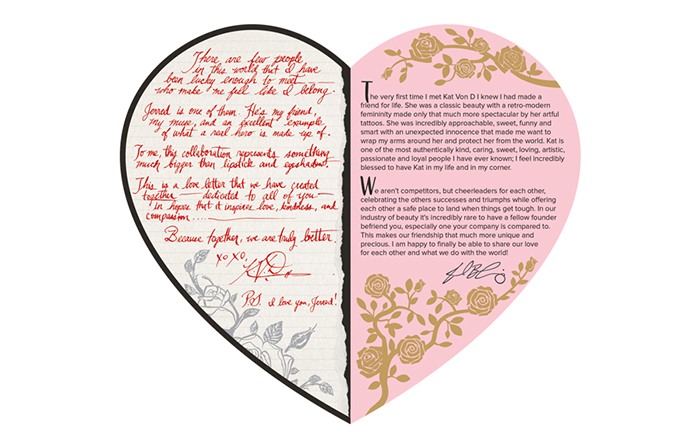 There are few people
in this world that I have
been lucky enough to meet
who make me feel like I belong.
Jerred is one of them. He's my friend,
my muse, and an excellent example
of what a real hero is made up of.
To me, this collaboration represents something
much bigger than lipstick and eyeshadow.
This is a love letter that we have created
together — dedicated to all of you —
in hopes that it inspires love, kindness, and
compassion....
Because together, we are truly better.
xoxo,
KVD
PS I love you, Jerrod!
The very first time I met Kat Von D I knew I had made a
friend for life. She was a classic beauty with a retro-modern
femininity made only that much more spectacular by her artful
tattoos. She was incredibly approachable, sweet, funny and
smart with an unexpected innocence that made me want to
wrap my arms around her and protect her from the world. Kat is
one of the most authentically kind, caring, sweet, loving, artistic,
passionate and loyal people I have ever known; I feel incredibly
blessed to have Kat in my life and in my corner.
We aren't competitors, but cheerleaders for each other,
celebrating the others successes and triumphs while offering
each other a safe place to land when things get tough. In our
industry of beauty it's incredibly rare to have a fellow founder
befriend you, especially one your company is compared to.
This makes our friendship that much more unique and
precious. I am happy to finally be able to share our love
for each other and what we do with the world!